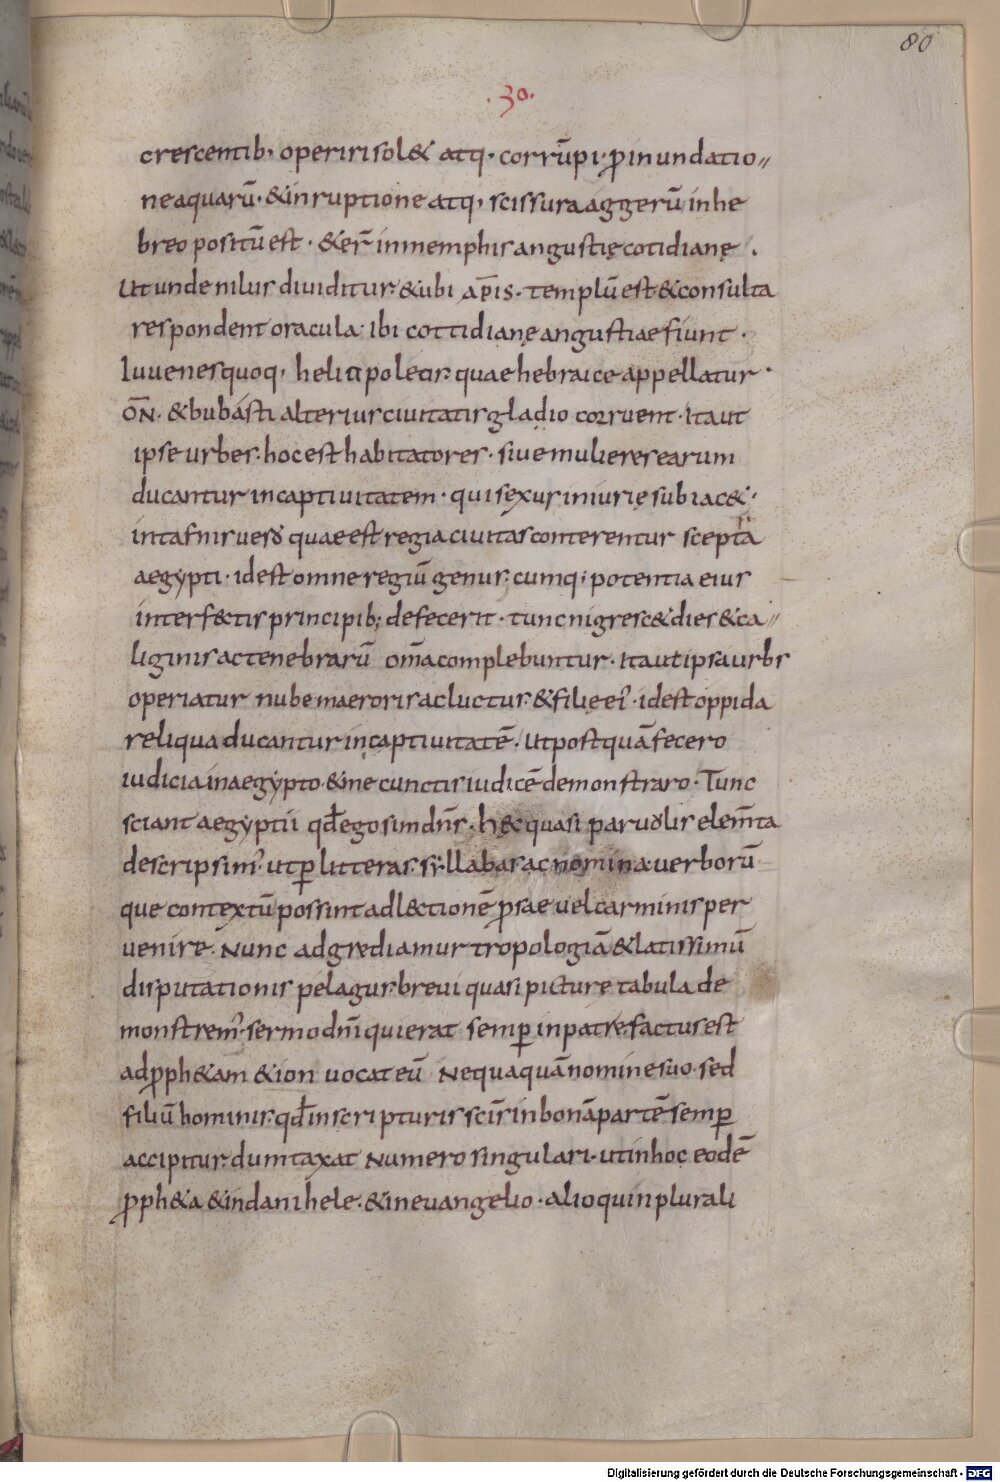 80
·30·
crescentib; operiri sol& atq; corrūpi· p̱inundatio//
ne aquarū· &inruptione atq; scissura aggerū inhe
breo positū est· &er̄ inmemphis angustię cotidianę ·
Ut unde nilus diuiditur &ubi apis· templū est &consulta
respondent oracula· Ibi cottidianę angustiae fiunt·
Iuuenes quoq; heliupoleos· quae hebraice appellatur·
ON̄· &bubásti alterius ciuitatis gladio corruent· Ita ut
ipse urbes· hoc est habitatores· siue mulieres earum
ducantur incaptiuitatem· qui sexus iniurię subiac&·
intafnis uero quae est regia ciuitas conterentur sceptra
aegypti· idest omne regiū genus; cumq; potentia eius
interf&tis principib; defecerit· tunc nigresc& dies &ca//
liginis ac tenebrarū om̄a complebuntur· Ita ut ipsa urbs
operiatur nube maeroris ac luctus· &filię ei'· idest oppida
reliqua ducantur incaptiuitatē· Ut postquā fecero
iudicia inaegypto &me cunctis iudicē demonstraro· Tunc
sciant aegyptii qđ ego sim dn̄s· h&c quasi paruolis elem̄ta
descripsim'· ut ꝑ litteras· syllabas ac nomina uerborū
que contextū possint adl&tionē ꝓsae uel carminis per
uenire· Nunc adgrediamur tropologiā &latissimū
disputationis pelagus breui quasi picturę tabula de
monstrem'· sermo dn̄i qui erat semꝑ in patre· factus est
adꝓph&am &ion uocat eū Nequaquā nomine suo· sed
filiū hominis· qđ in scripturis sc̄is in bonā partē semꝑ
accipitur· dumtaxat Numero singulari· ut in hoc eodē
ꝓph&a &in danihele· &in euangelio· alioquin plurali
Digitalisierung gefördert durch die Deutsche Forschungsgemeinschaft - DFG